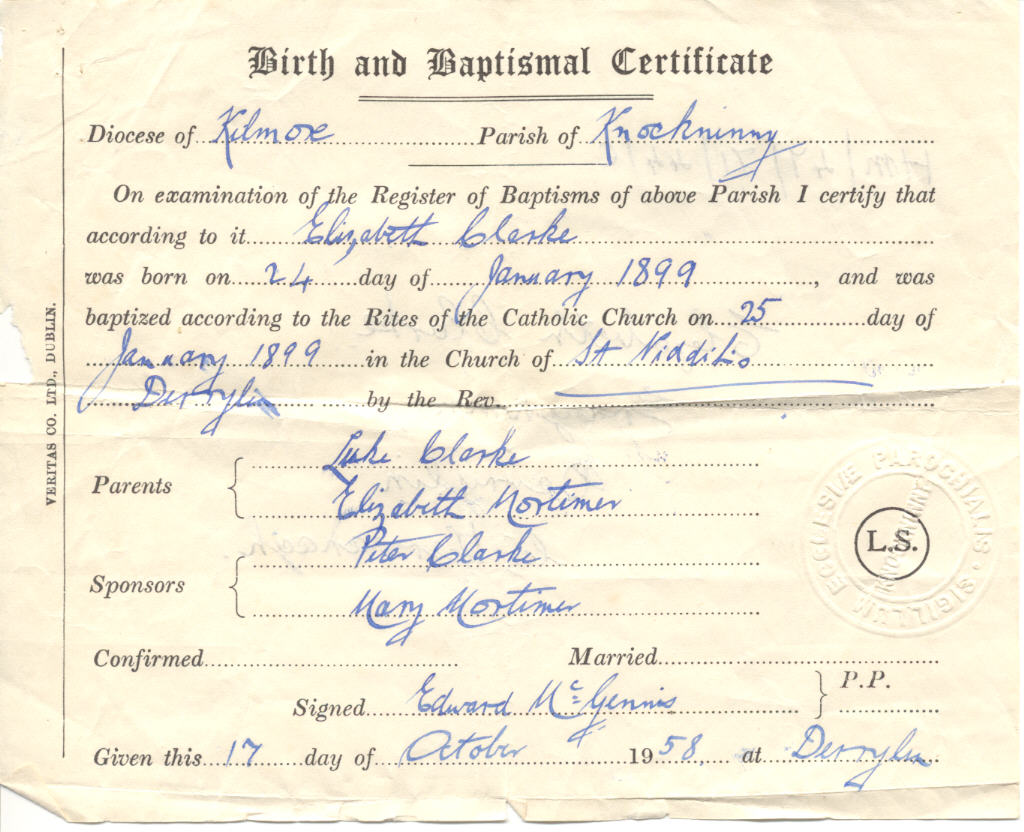 Birth and Baptismal Certificate
Diocese of Kilmore Parish of Knockninny
On examination of the Register of Baptisms of above Parish I certify that
according to it Elizabeth Clarke
was born on 24 day of January 1899, and was
baptized according to the Rites of the Catholic Church on 25 day of
January 1899 in the Church of St
Derrylin by the Rev.
Parents
Luke Clarke
Elizabeth Mortimer
Sponsors
Peter Clarke
Mary Mortimer
Confirmed Married
Signed Edward McGennis P.P.
Given this 17 day of October 1958, at Derrylin
L.S.
SIGILLUM ECCLESIÆ PAROCHIALIS
VERITAS CO. LTD., DUBLIN.